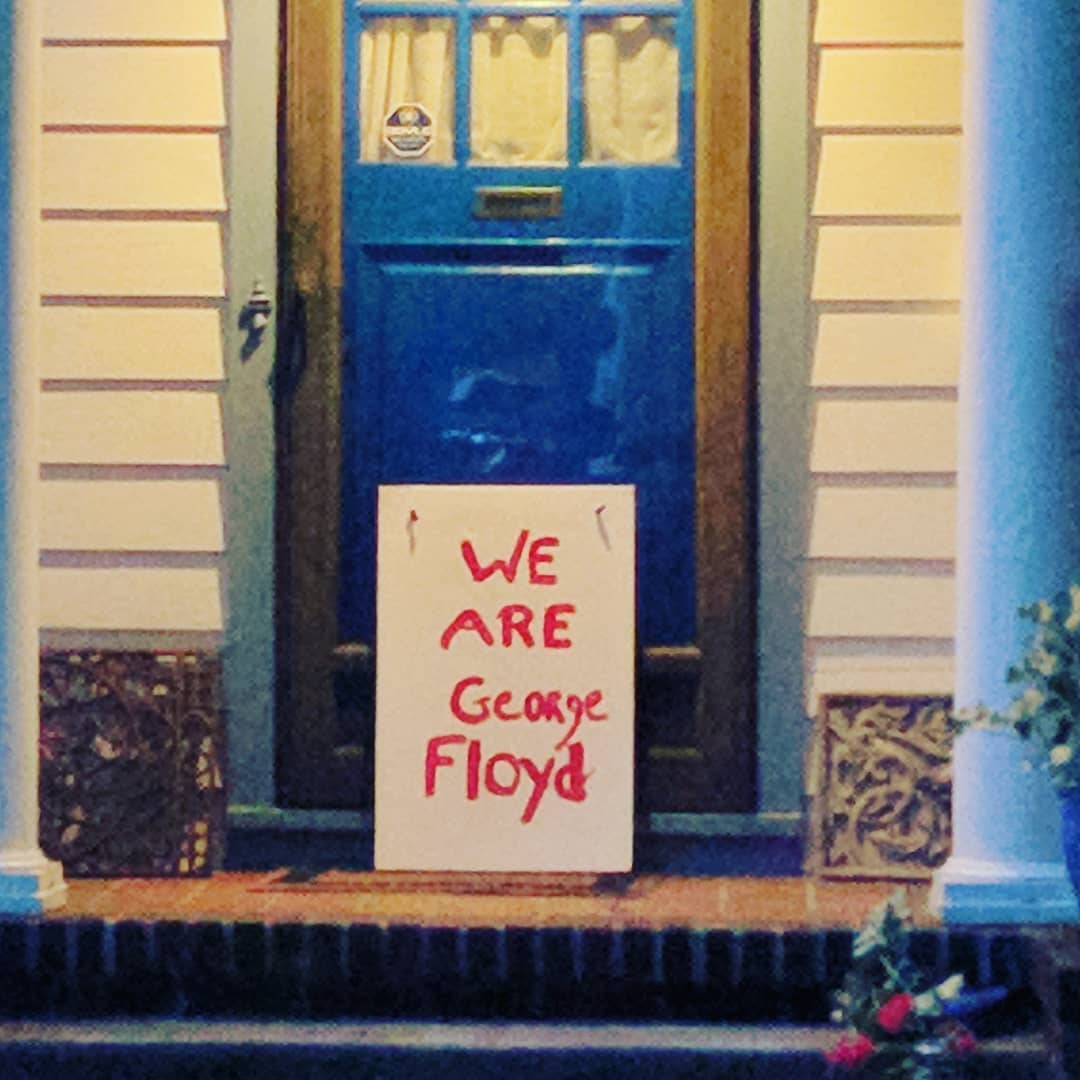 WE
ARE
George
Floyd